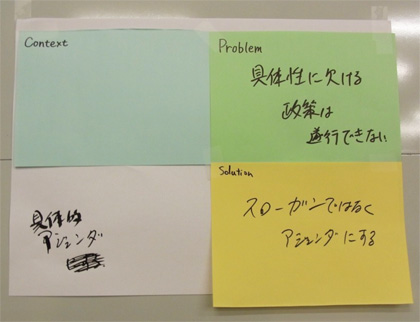 Context
Problem
具体性に欠ける
政策は
遂行できない
Solution
スローガンではなく
アジェンダにする
具体的
アジェンダ